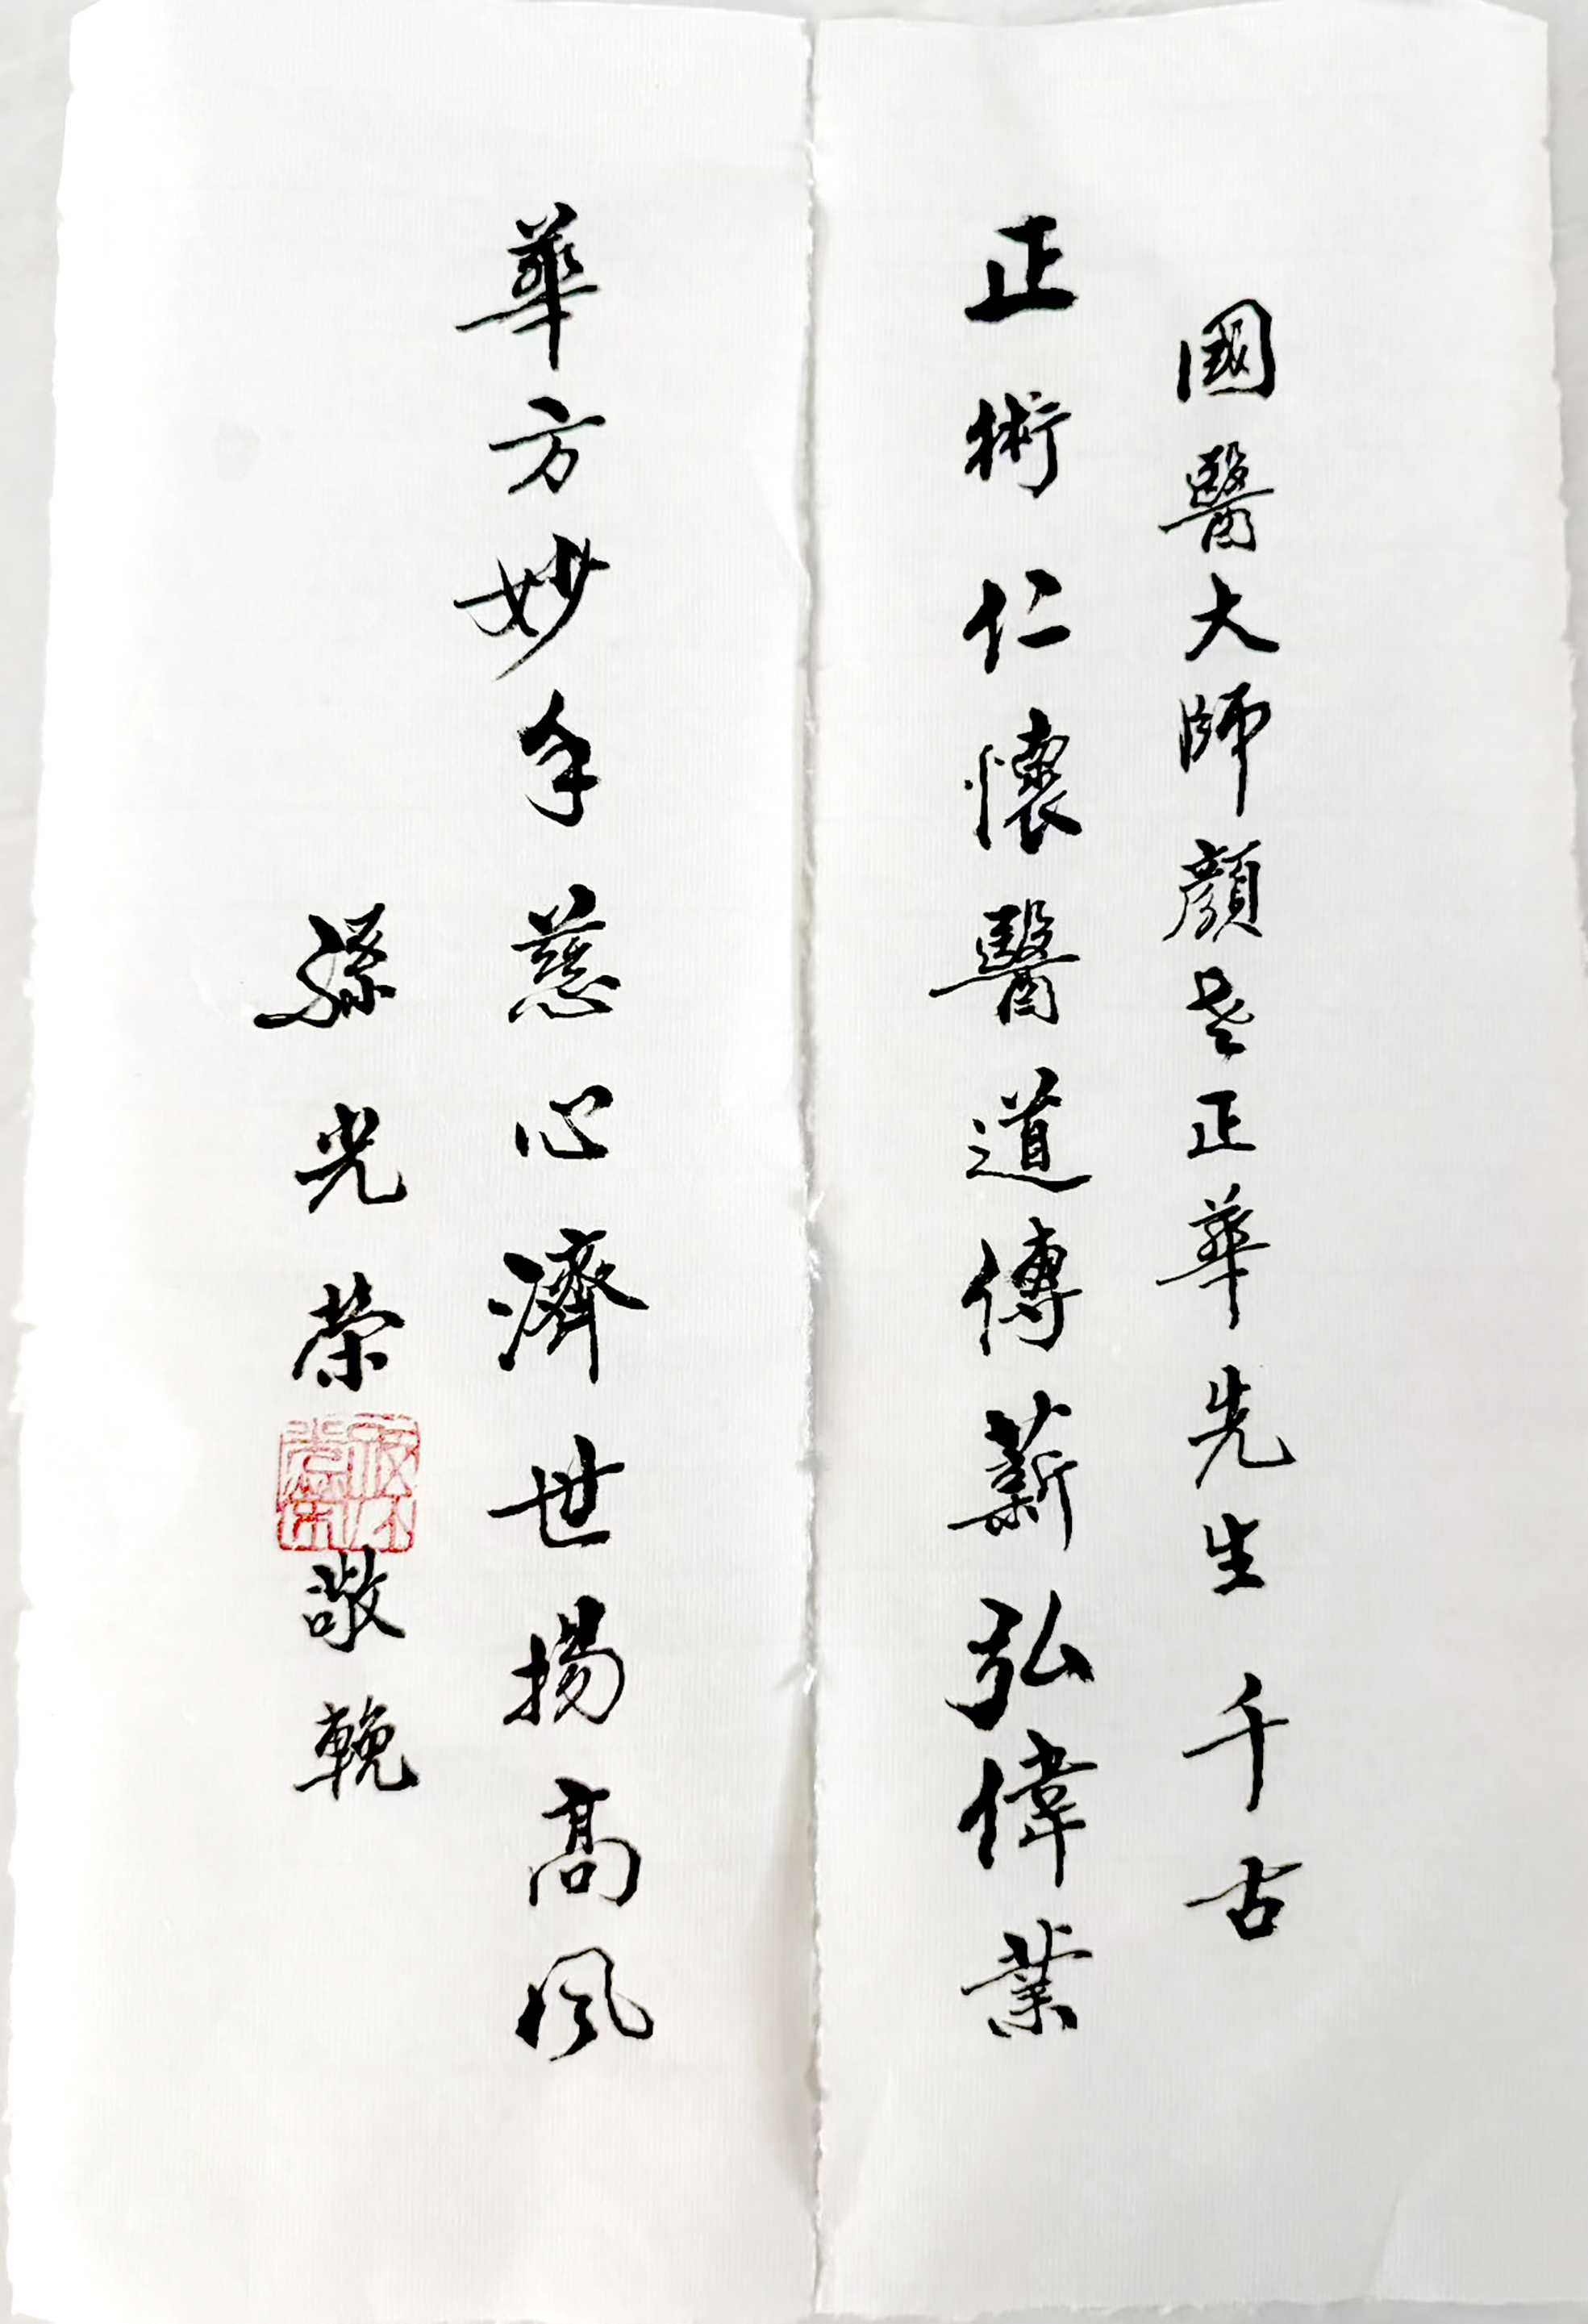 國醫大師顏老正華先生千古
正術仁懷醫道傳薪弘偉業
華方妙手慈心濟世揚高風
孫光榮
敬輓